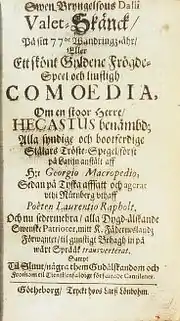 Swen Bryngelsons Dalli
Valet-Skänck/
På sitt 77de Wandrings-åhr/
Eller
Ett skönt Gyldene Frögde-
Speel och liufligh
COMOEDIA,
Om en stoor Herre/
HECASTUS benämbd;
Alla syndige och bootferdige
Siälars Tröste-Speghel först
på Latijn anstält aff
H:r Georgio Macropedio,
Sedan på Tyska affsatt och agerat
vthi Nürnberg vthaff
Poëten Laurentio Rapholt,
Och nu sidermehra/alla Dygd-älskande
Swenske Patrioter, mitt K. Fäderneslandz
Förwanter/til gunstigt Behagh in på
wårt Språåk transverterat.
Sampt
Til Sluut/några them Gudälskandom och